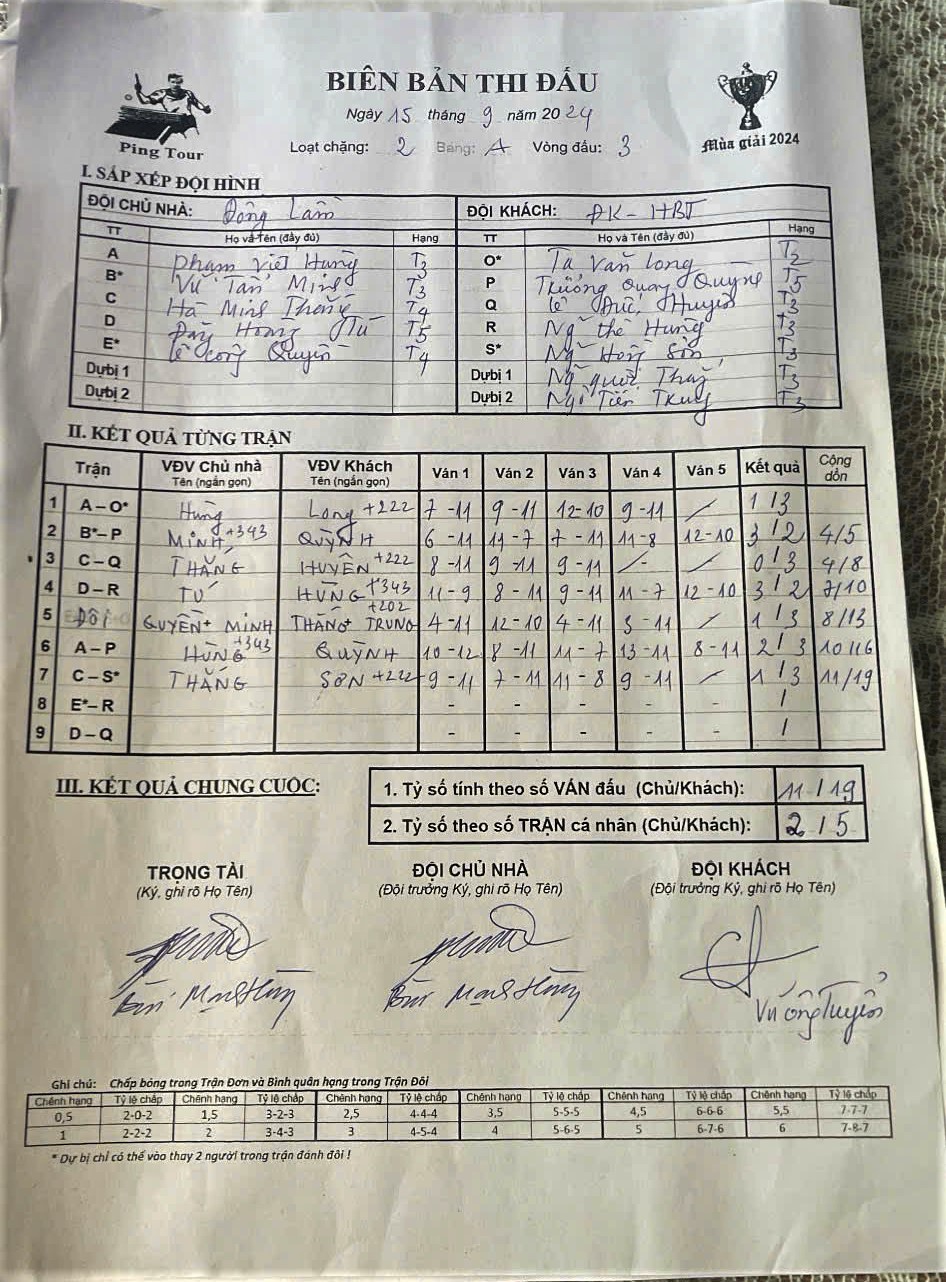 BIÊN BẢN THI ĐẤU
Ping Tour
Ngày 15 tháng 9 năm 2024
Mùa giải 2024
Loạt chặng: 2 Bảng: A Vòng đấu: 3
I. SẮP XẾP ĐỘI HÌNH
ĐỘI CHỦ NHÀ: Đông Lâm ĐỘI KHÁCH: ĐK-HBT
TT Họ và Tên (đầy đủ) Hạng TT Họ và Tên (đầy đủ) Hạng
A Phạm Việt Hưng T3 O* Tạ Văn Long T2
B* Vũ Tấn Minh T3 P Trương Quay Quỳnh T5
C Hà Minh Thắng T4 Q Lê Đức Huyên T3
D Đào Hoàng Tú T5 R Ng Thế Hưng T3
E* Lê Công Quyền T4 S* Ng Hồng Sơn T3
Dự bị 1 Dự bị 1 Ng Thắng T3
Dự bị 2 Dự bị 2 Ngô Tiến Trung T3
II. KẾT QUẢ TỪNG TRẬN
Trận VĐV Chủ nhà Tên (ngắn gọn) VĐV Khách Tên (ngắn gọn) Ván 1 Ván 2 Ván 3 Ván 4 Ván 5 Kết quả Cộng dồn
1 A – O* Hưng Long +222 7 -11 9 -11 12-10 9 -11 / 1/3
2 B* – P MINH +343 QUỲNH 6 -11 11 -7 7 -11 11-8 12-10 3/2 4/5
3 C – Q THẮNG HUYÊN +222 8 -11 9 -11 9 -11 /-/ / 0/3 4/8
4 D – R TÚ HƯNG +343 11-9 8 -11 9 -11 11 -7 12-10 3/2 7/10
5 Đôi QUYỀN + MINH THẮNG + TRUNG +202 4-11 12-10 4-11 3 -11 / 1/3 8/13
6 A – P HƯNG +343 QUỲNH 10-12 8 -11 11 - 7 13 -11 8-11 2/3 10/16
7 C – S* THẮNG SƠN +222 9 -11 7 -11 11 - 8 9 -11 / 1/3 11/19
8 E* – R - - - - - /
9 D – Q - - - - - /
III. KẾT QUẢ CHUNG CUỘC:
1. Tỷ số tính theo số VÁN đấu (Chủ/Khách): 11/19
2. Tỷ số theo số TRẬN cá nhân (Chủ/Khách): 2/5
TRỌNG TÀI ĐỘI CHỦ NHÀ ĐỘI KHÁCH
(Ký, ghi rõ Họ Tên) (Đội trưởng Ký, ghi rõ Họ Tên) (Đội trưởng Ký, ghi rõ Họ Tên)
Bùi Mạnh Hùng Bùi Mạnh Hùng
Ghi chú: Chấp bóng trong Trận Đơn và Bình quân hạng trong Trận Đôi
Chênh hạng Tỷ lệ chấp Chênh hạng Tỷ lệ chấp Chênh hạng Tỷ lệ chấp Chênh hạng Tỷ lệ chấp Chênh hạng Tỷ lệ chấp Chênh hạng Tỷ lệ chấp
0,5 2-0-2 1,5 3-2-3 2,5 4-4-4 3,5 5-5-5 4,5 6-6-6 5,5 7-7-7
1 2-2-2 2 3-4-3 3 4-5-4 4 5-6-5 5 6-7-6 6 7-8-7
* Dự bị chỉ có thể vào thay 2 người trong trận đánh đôi !